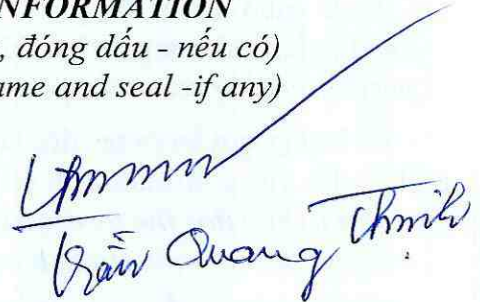 NFORMATION
, đóng dấu - nếu có)
ame and seal -if any)
Trần Quang Thịnh